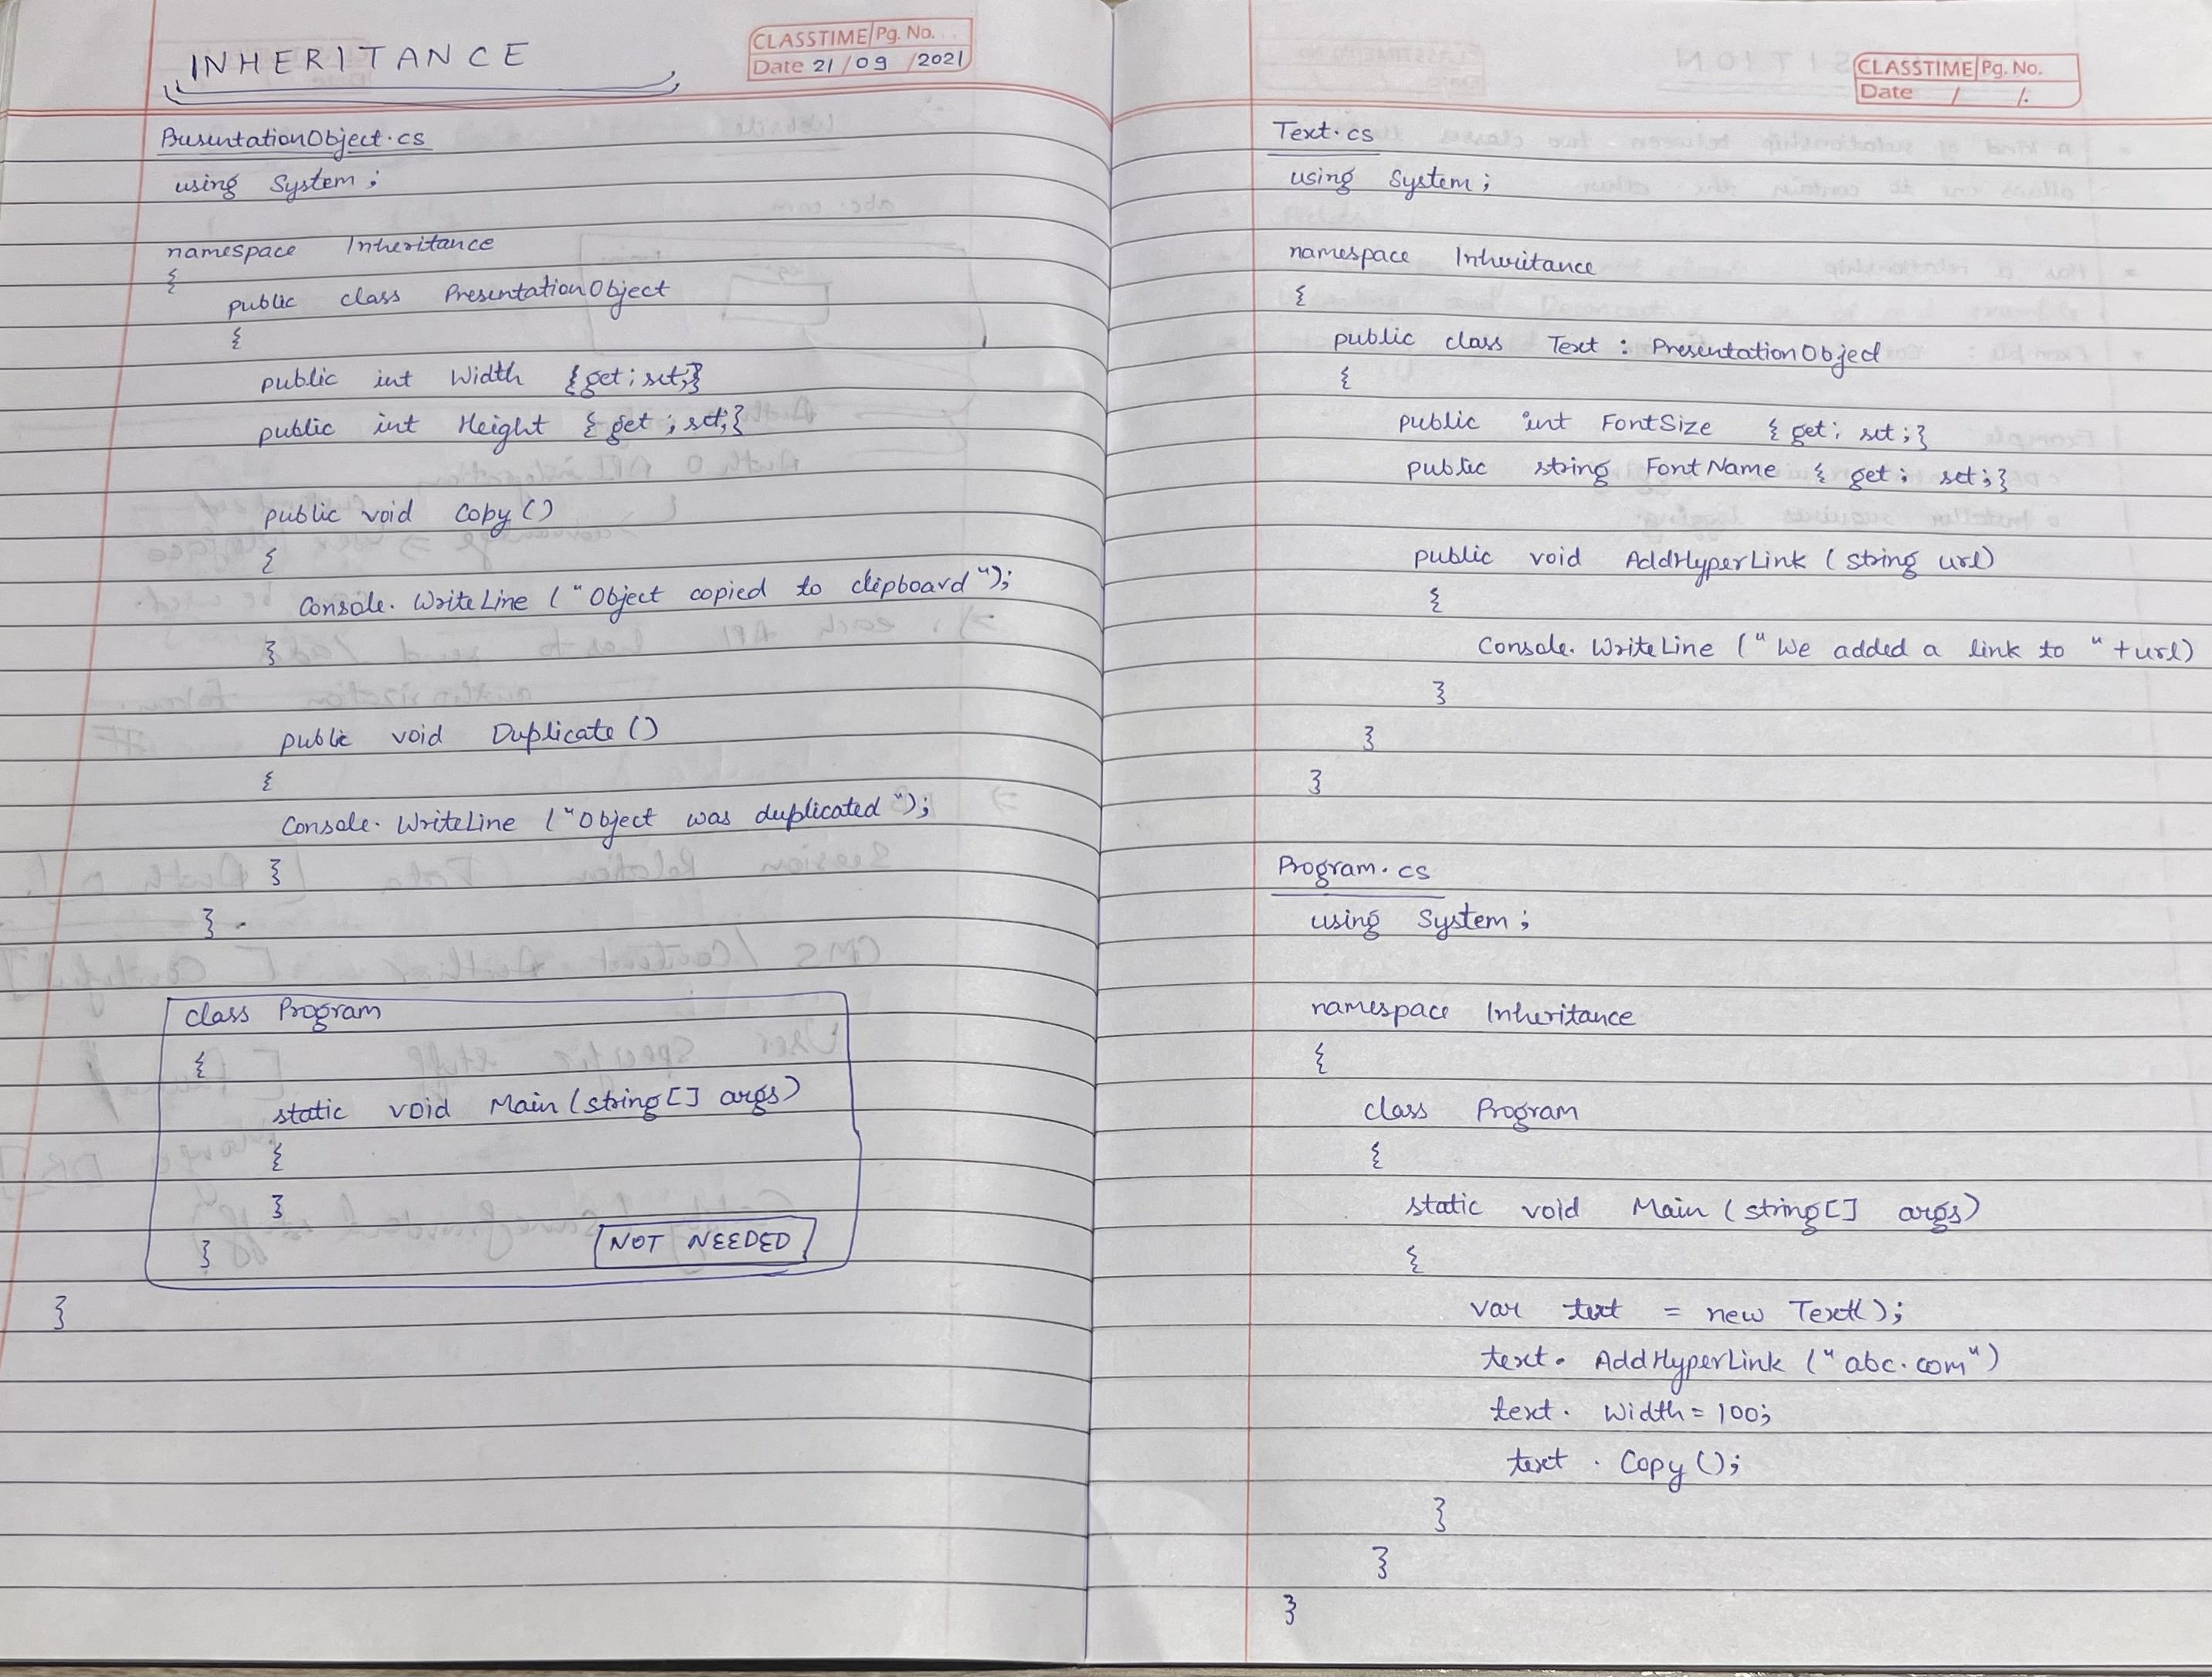 INHERITANCE
CLASSTIME Pg. No.
Date 21 / 09 / 2021
PresentationObject.cs
using System;
namespace Inheritance
{
public class PresentationObject
{
public int Width {get; set;}
public int Height {get; set;}
public void Copy()
{
Console.WriteLine ("Object copied to clipboard");
}
public void Duplicate()
{
Console.WriteLine ("Object was duplicated");
}
}
class Program
{
static void Main (string[] args)
{
}
}
NOT NEEDED
}
CLASSTIME Pg. No.
Date / /.
Text.cs
using System;
namespace Inheritance
{
public class Text : PresentationObject
{
public int FontSize {get; set;}
public string FontName {get; set;}
public void AddHyperLink (string url)
{
Console.WriteLine ("We added a link to " + url)
}
}
}
Program.cs
using System;
namespace Inheritance
{
class Program
{
static void Main (string[] args)
{
var text = new Text();
text.AddHyperLink ("abc.com")
text.Width = 100;
text.Copy();
}
}
}